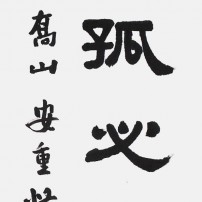 孤必
髙山安重